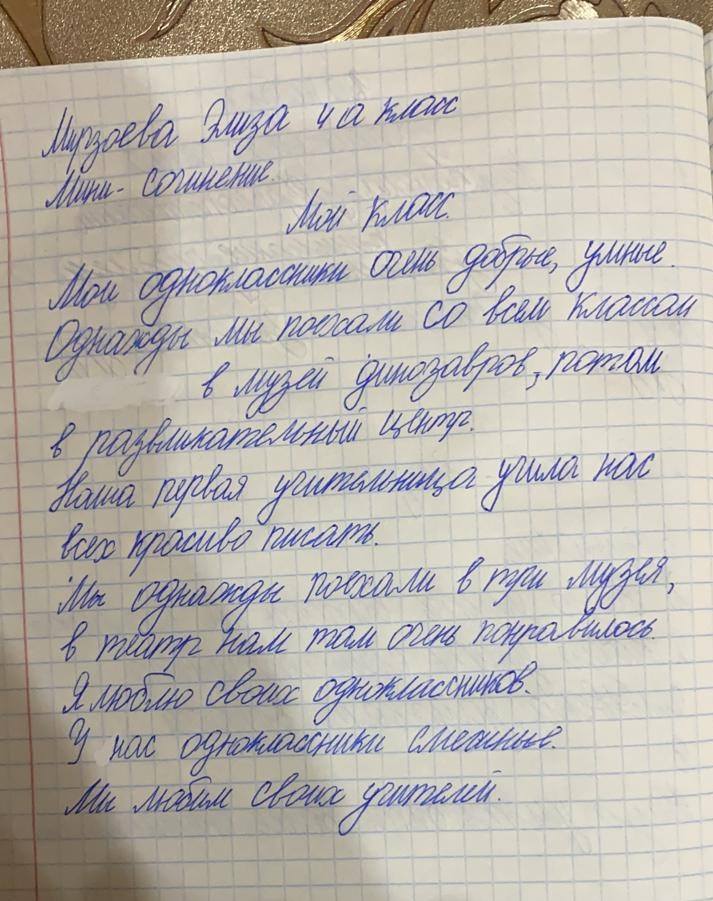 Мирзоева Элиза 4 а класс
Мини - сочинение.
Мой класс.
Мои одноклассники очень добрые, умные.
Однажды мы поехали со всем классом
в музей динозавров, потом
в развликательный центр.
Наша первая учительница учила нас
всех красиво писать.
Мы однажды поехали в три музея,
в театр нам там очень понравилось.
Я люблю своих одноклассников.
У нас одноклассники смешные.
Ми любим своих учителей.